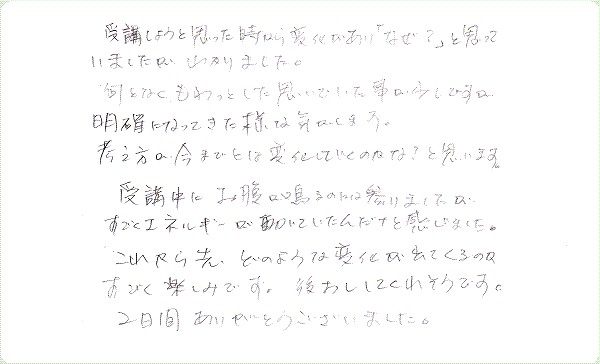 受講しようと思った時から変化があり「なぜ？」と思って
いましたが わかりました。
何となくもわっとした思いでいた事が少しですが
明確になってきた様な気がします。
考え方が今までとは変化していくのかな？と思います。
受講中に お腹が鳴るのには参りましたが
すごくエネルギーが動いていたんだナと感じました。
これから先、どのような変化が出てくるのか
すごく楽しみです。後おししてくれそうです。
2日間 ありがとうございました。